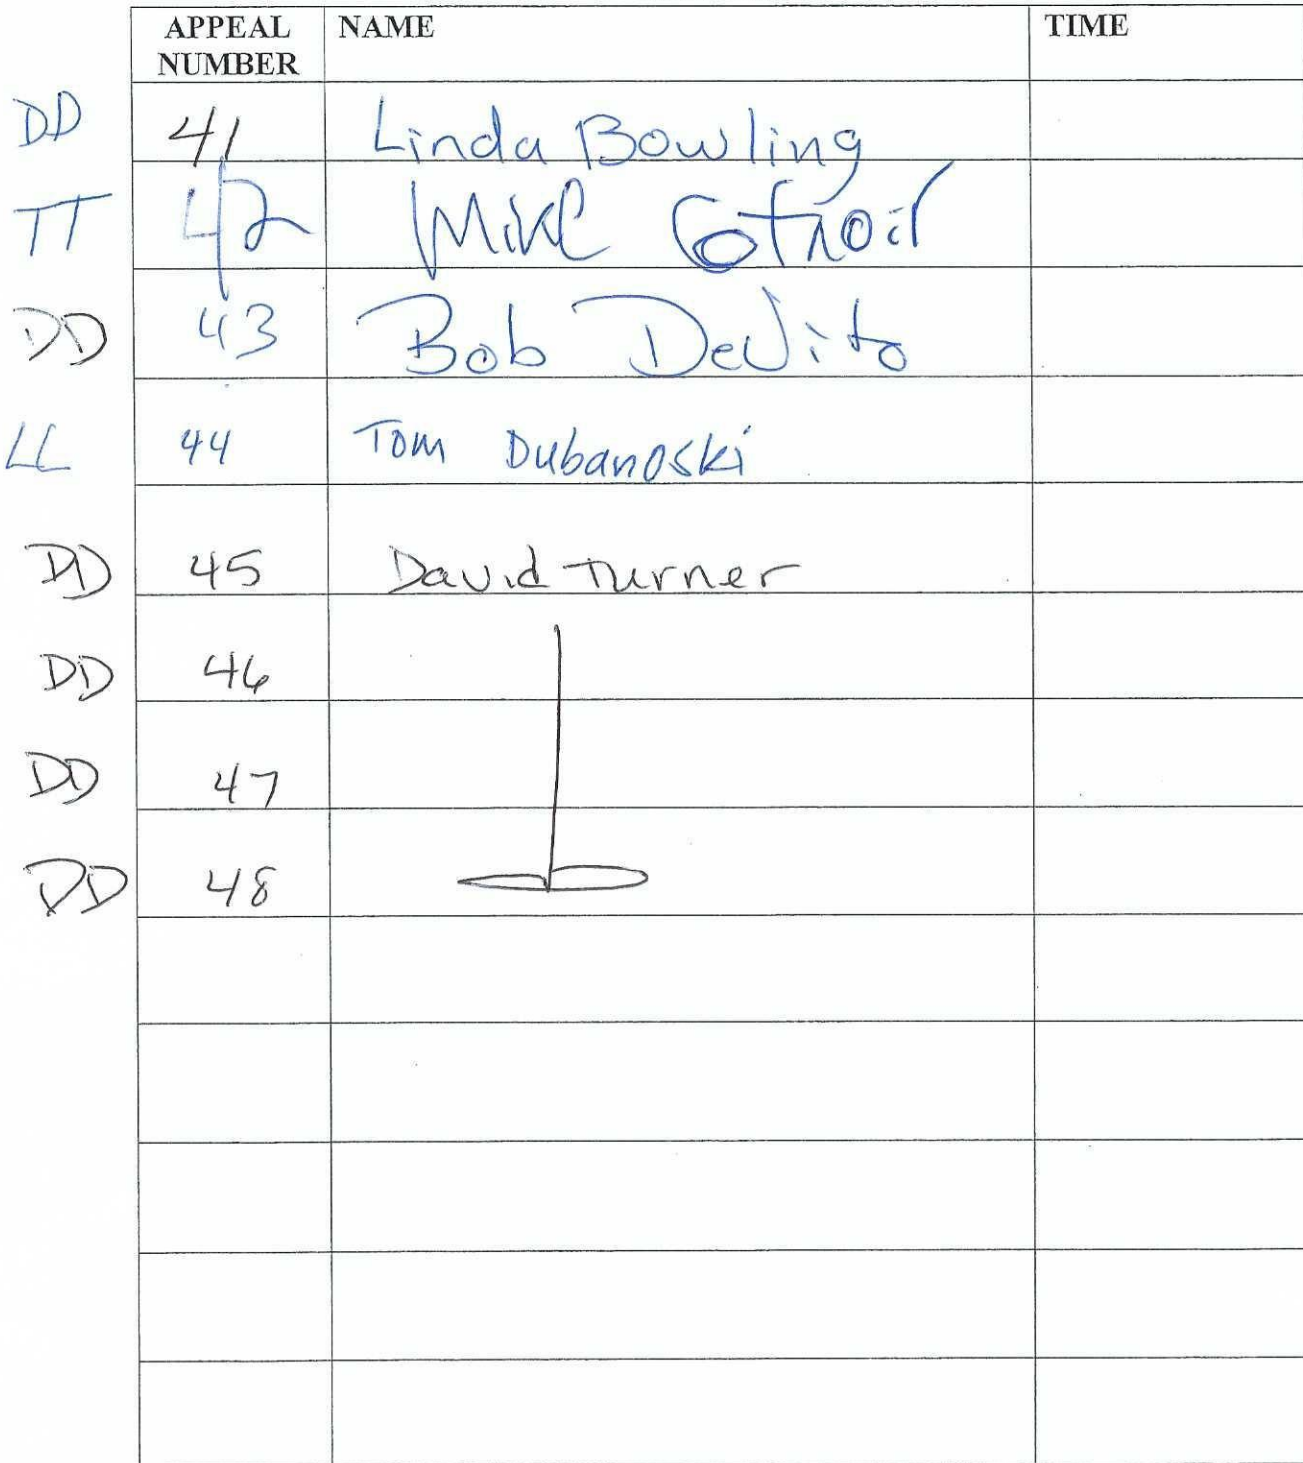 APPEAL NUMBER NAME TIME
DD 41 Linda Bowling
TT 42 Mike
DD 43 Bob DeVito
LL 44 Tom Dubanoski
DD 45 David Turner
DD 46
DD 47
DD 48